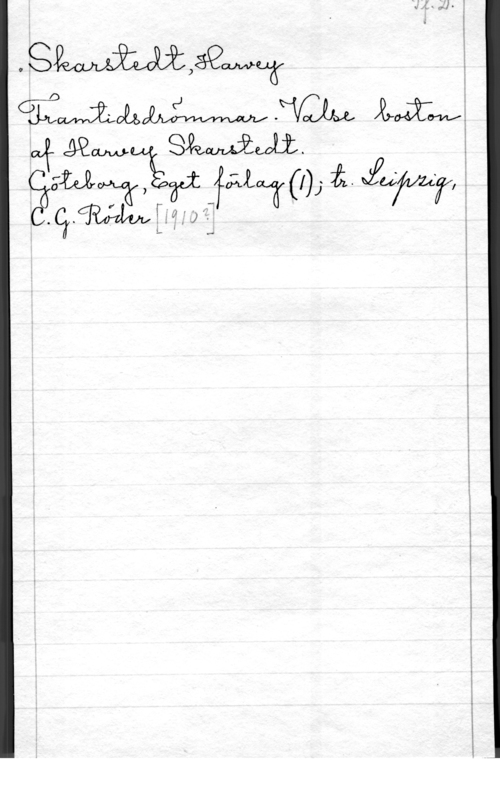 Skarstedt, Harvey
Framtidsdrömmar. Valse boston
af Harvey Skarstedt.
Göteborg, Eget förlag (1); tr. Leipzig,
C. G. Röder [1910?]